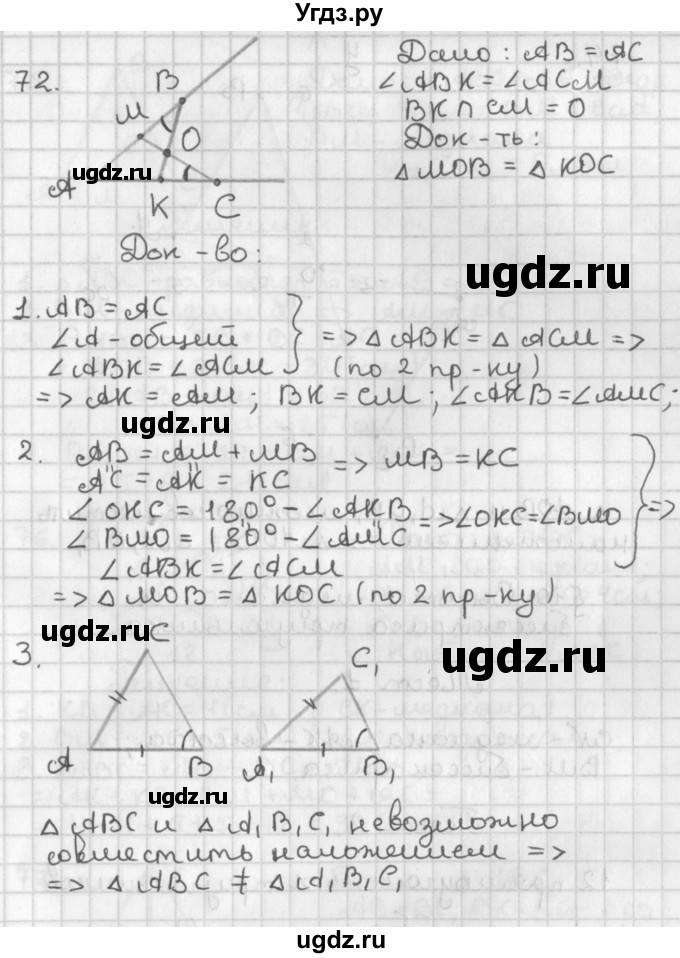 Угдз.ру
72.
B
M
O
A
K
C
Дано: AB = AC
∠ABK = ∠ACM
BK ∩ CM = O
Док-ть:
△MOB = △KOC
ugdz.ru
Док-во:
ugdz.ru
1. AB = AC
∠A - общий => △ABK = △ACM =>
∠ABK = ∠ACM (по 2 пр-ку)
=> AK = AM; BK = CM; ∠AKB = ∠AMC;
ugdz.ru
2. AB = AM + MB => MB = KC
AC = AK = KC
∠OKC = 180° - ∠AKB
∠BMO = 180° - ∠AMC => ∠OKC = ∠BMO =>
∠ABK = ∠ACM
=> △MOB = △KOC (по 2 пр-ку)
ugdz.ru
ugdz.ru
3.
C
A
B
C₁
A₁
B₁
ugdz.ru
△ABC и △A₁B₁C₁ невозможно
совместить наложением =>
=> △ABC ≠ △A₁B₁C₁
ugdz.ru